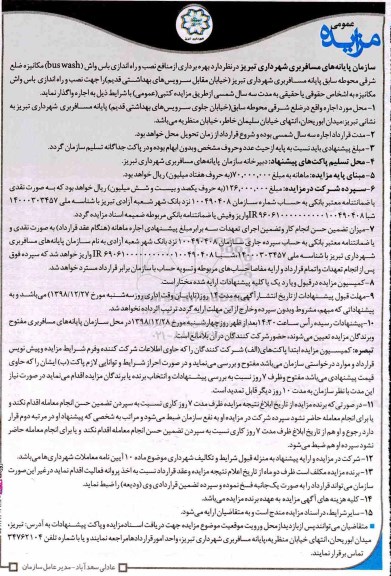 مزایده عمومی
سازمان پایانه‌های مسافربری شهرداری تبریز در نظر دارد بهره برداری از منافع نصب و راه اندازی باس واش (bus wash) مکانیزه ضلع
شرقی محوطه سابق پایانه مسافربری شهرداری تبریز (خیابان مقابل سرویس‌های بهداشتی قدیم) را جهت نصب و راه اندازی باس واش
مکانیزه به اشخاص حقوقی یا حقیقی به مدت سه سال شمسی از طریق مزایده کتبی (عمومی) با شرایط ذیل به اجاره واگذار نماید.
۱- محل مورد اجاره واقع در ضلع شرقی محوطه سابق (خیابان جلوی سرویس‌های بهداشتی قدیم) پایانه مسافربری شهرداری تبریز به
نشانی تبریز، میدان ابوریحان، انتهای خیابان سلیمان خاطر، خیابان منظریه می‌باشد.
۲- مدت قرارداد اجاره سه سال شمسی بوده و شروع قرارداد از زمان تحویل محل خواهد بود.
۳- مبلغ پیشنهادی باید نسبت به پایه از حیث عدد و حروف مشخص وبدون ابهام بوده و در پاکت جداگانه تسلیم سازمان گردد.
۴- محل تسلیم پاکت‌های پیشنهاد: دبیرخانه سازمان پایانه‌های مسافربری شهرداری تبریز.
۵- مبنای پایه مزایده: ماهانه به مبلغ ۷۰,۰۰۰,۰۰۰ ریال (به حروف هفتاد میلیون) ریال خواهد بود.
۶- سپرده شرکت در مزایده: مبلغ ۱۲۶,۰۰۰,۰۰۰ (به حروف یکصد و بیست و شش میلیون) ریال خواهد بود که به صورت نقدی
یا ضمانتنامه معتبر بانکی به حساب شماره سازمان ۱۰۰۴۹۰۴۰۸ نزد بانک شهر شعبه آزادی تبریز با شناسه ملی ۱۴۰۰۰۳۰۳۴۵۷
واریز وفیش یا ضمانتنامه بانکی مربوطه ضمیمه اسناد مزایده گردد.
۷- میزان تضمین حسن انجام کار وتضمین اجرای تعهدات سه برابر مبلغ پیشنهادی اجاره ماهانه (هنگام عقد قرارداد) به صورت نقدی و
یا ضمانتنامه معتبر بانکی به حساب سپرده جاری سازمان ۱۰۰۴۹۰۴۰۸ نزد بانک شهر شعبه آزادی به نام سازمان پایانه‌های مسافربری
پس از انجام تعهدات واتمام قرارداد و ارایه مفاصاحساب‌های مربوطه و تسویه حساب با سازمان برابر قرارداد مسترد خواهد شد.
۸- کمیسیون مزایده در قبول و یا رد یک یا کلیه پیشنهادات ارایه شده مختار است.
۹- مهلت قبول پیشنهادات از تاریخ انتشار آگهی به مدت ۱۴ روز (تا پایان وقت اداری روز سه‌شنبه مورخ ۱۳۹۸/۱۲/۲۷) می‌باشد و به
پیشنهاداتی که مبهم، مشروط وبدون سپرده و خارج از این مهلت ارایه گردد ترتیب اثر داده نخواهد شد.
۱۰- پیشنهادات رسیده رأس ساعت ۱۴:۳۰ بعد از ظهر روز چهارشنبه مورخ ۱۳۹۸/۱۲/۲۸ در محل سازمان پایانه‌های مسافربری مفتوح
وبرندگان مزایده تعیین می‌شوند. حضور شرکت‌کنندگان در آن بلامانع است.
تبصره: کمیسیون مزایده ابتدا پاکت‌های (الف) شرکت کنندگان را که حاوی اطلاعات شرکت کننده وفرم شرایط مزایده و پیش نویس
قرارداد و موارد درخواستی سازمان می‌باشد مفتوح و بررسی می‌نماید و در صورت احراز شرایط و توانایی لازم پاکت (ب) ایشان را که حاوی
قیمت پیشنهادی می‌باشد مفتوح وظرف ۷ روز نسبت به بررسی پیشنهادات و انتخاب برنده یا برندگان مزایده اقدام می‌نماید در صورت نیاز
این مدت با نظر سازمان به مدت ۱۰ روز دیگر قابل تمدید است.
۱۱- در صورتی که برنده مزایده از تاریخ ابلاغ نتیجه مزایده ظرف مدت ۷ روز کاری نسبت به سپردن تضمین حسن انجام معامله اقدام نکند و
یا برای انجام معامله حاضر نشود سپرده شرکت در مزایده او به نفع سازمان ضبط می‌شود و مراتب به شخصی که پیشنهاد او در مرتبه دوم قرار
دارد رجوع و او هم از تاریخ ابلاغ ظرف مدت ۷ روز کاری نسبت به سپردن تضمین حسن انجام معامله اقدام نکند و یا برای انجام معامله حاضر
نشود سپرده او هم ضبط می‌شود.
۱۲- شرکت در مزایده و ارایه پیشنهاد به منزله قبول شرایط و تکالیف شهرداری موضوع ماده ۱۰ آیین نامه معاملات شهرداری‌ها می‌باشد.
۱۳- برنده مزایده مکلف است ظرف دو ماه از تاریخ اعلام نتیجه مزایده و عقد قرارداد نسبت به اخذ پروانه فعالیت اقدام نماید در غیر این صورت
سازمان می‌تواند قرارداد را به صورت یکجانبه فسخ نموده و سپرده تضمین قراردادی وی (ودیعه) را ضبط نماید.
۱۴- کلیه هزینه‌های آگهی مزایده به عهده برنده مزایده می‌باشد.
۱۵- سایر شرایط، در اسناد مزایده مندرج است و به متقاضیان ارایه می‌شود.
متقاضیان می‌توانند پس از بازدید از محل ورویت موقعیت موضوع مزایده جهت دریافت اسناد مزایده وپاکت پیشنهادات به آدرس: تبریز،
میدان ابوریحان، انتهای خیابان منظریه، پایانه مسافربری شهرداری تبریز، واحد امور قراردادها مراجعه نمایند و یا با شماره تلفن ۳۴۷۶۲۱۰۴
تماس برقرار نمایند.
عادلی سعدآباد - مدیرعامل سازمان